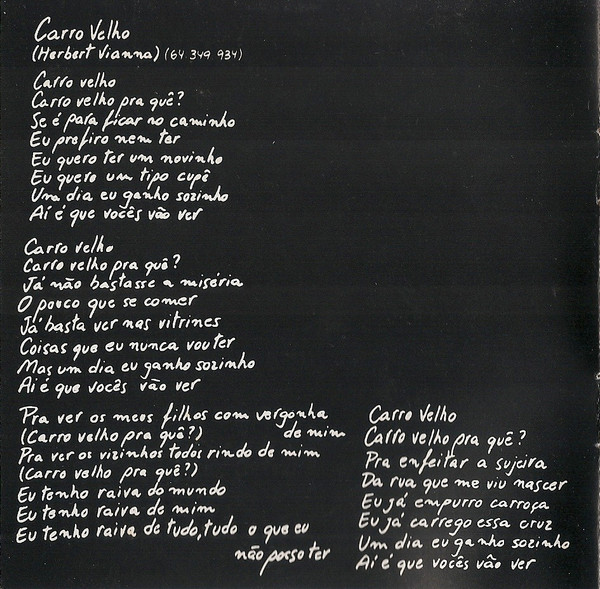 Carro Velho
(Herbert Vianna) (64 349 934)
Carro velho
Carro velho pra quê?
Se é para ficar no caminho
Eu prefiro nem ter
Eu quero ter um novinho
Eu quero um tipo cupê
Um dia eu ganho sozinho
Aí é que vocês vão ver
Carro velho
Carro velho pra quê?
Já não bastasse a miséria
O pouco que se comer
Já basta ver nas vitrines
Coisas que eu nunca vou ter
Mas um dia eu ganho sozinho
Aí é que vocês vão ver
Pra ver os meus filhos com vergonha
(Carro velho pra quê?) de mim
Pra ver os vizinhos todos rindo de mim
(Carro velho pra quê?)
Eu tenho raiva do mundo
Eu tenho raiva de mim
Eu tenho raiva de tudo, tudo o que eu
não posso ter
Carro Velho
Carro velho pra quê?
Pra enfeitar a sujeira
Da rua que me viu nascer
Eu já empurro carroça
Eu já carrego essa cruz
Um dia eu ganho sozinho
Aí é que vocês vão ver